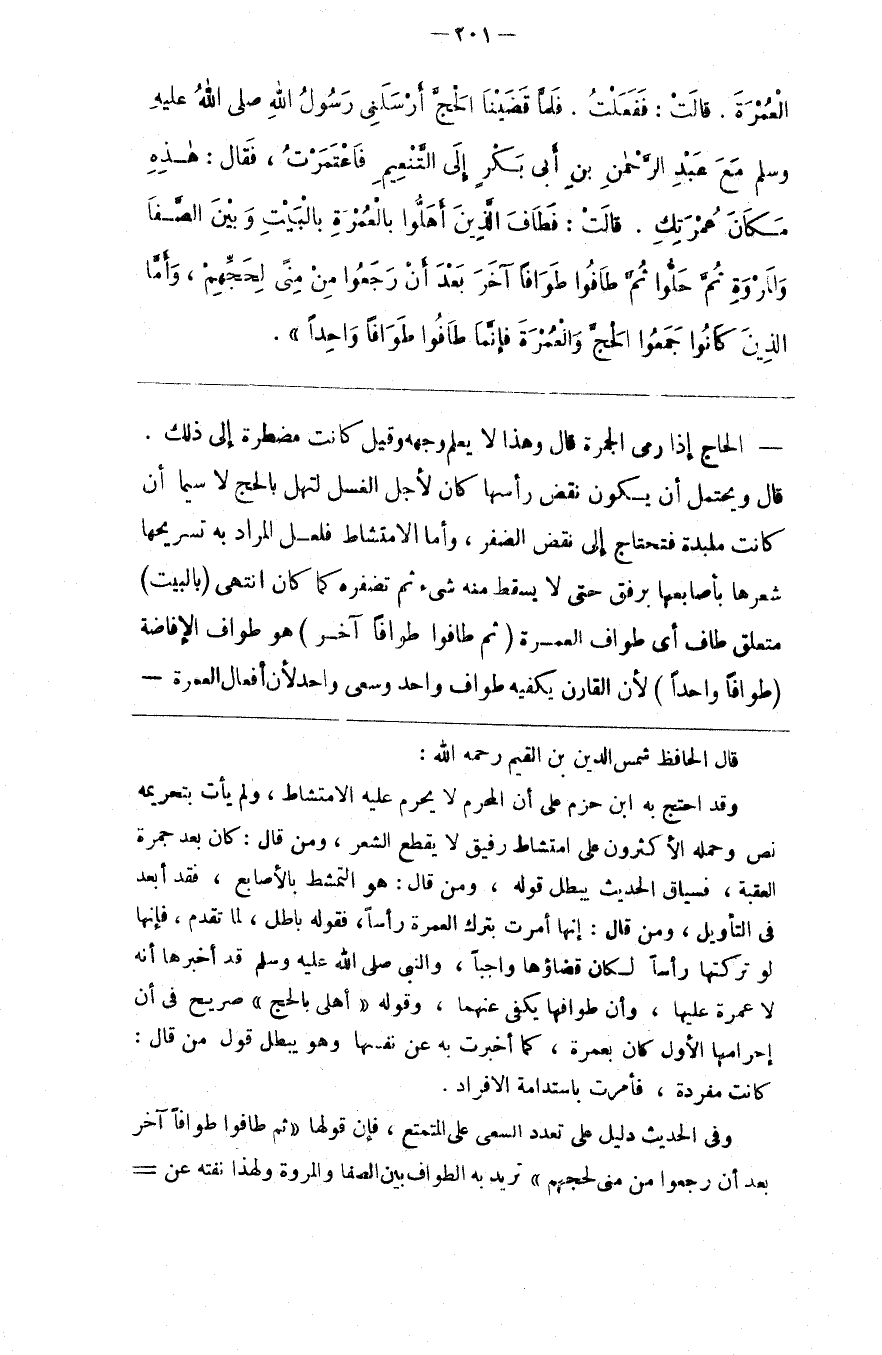 — ٢٠١ —
الْعُمْرَةَ . قالَتْ : فَفَعَلْتُ . فَلَمَّا قَضَيْنَا الْحَجَّ أَرْسَلَنِى رَسُولُ اللهِ صلى اللهُ عليهِ
وسلم مَعَ عَبْدِ الرَّحْمٰنِ بنِ أَبى بَكْرٍ إِلَى التَّنْعِيمِ فَاعْتَمَرْتُ ، فَقَال : هٰذِهِ
مَكَانَ عُمْرَتِكِ . قالَتْ : فَطَافَ الَّذِينَ أَهَلُّوا بالْعُمْرَةِ بالْبَيْتِ وَبَيْنَ الصَّفَا
وَالمَرْوَةِ ثُمَّ حَلُّوا ثُمَّ طَافُوا طَوَافاً آخَرَ بَعْدَ أَنْ رَجَعُوا مِنْ مِنًى لِحَجِّهِمْ ، وَأَمَّا
الذِينَ كَانُوا جَمَعُوا الْحَجَّ وَالْعُمْرَةَ فإنَّمَا طَافُوا طَوَافاً وَاحِداً » .
— الحاج إذا رمى الجمرة قال وهذا لا يعلم وجهه وقيل كانت مضطرة إلى ذلك .
قال ويحتمل أن يكون نقض رأسها كان لأجل الغسل لتهل بالحج لا سيما أن
كانت ملبدة فتحتاج إلى نقض الضفر ، وأما الامتشاط فلعل المراد به تسريحها
شعرها بأصابعها برفق حتى لا يسقط منه شىء ثم تضفره كما كان انتهى (بالبيت)
متعلق طاف أى طواف العمرة ( ثم طافوا طوافاً آخر ) هو طواف الإفاضة
(طوافاً واحداً ) لأن القارن يكفيه طواف واحد وسعى واحد لأن أفعال العمرة —
قال الحافظ شمس الدين بن القيم رحمه الله :
وقد احتج به ابن حزم على أن المحرم لا يحرم عليه الامتشاط ، ولم يأت بتحريمه
نص وحمله الأكثرون على امتشاط رفيق لا يقطع الشعر ، ومن قال : كان بعد جمرة
العقبة ، فسياق الحديث يبطل قوله ، ومن قال : هو التمشط بالأصابع ، فقد أبعد
فى التأويل ، ومن قال : إنها أمرت بترك العمرة رأساً، فقوله باطل ، لما تقدم ، فإنها
لو تركتها رأساً لكان قضاؤها واجباً ، والنبى صلى الله عليه وسلم قد أخبرها أنه
لا عمرة عليها ، وأن طوافها يكفى عنهما ، وقوله « أهلى بالحج » صريح فى أن
إحرامها الأول كان بعمرة ، كما أخبرت به عن نفسها وهو يبطل قول من قال :
كانت مفردة ، فأمرت باستدامة الافراد .
وفى الحديث دليل على تعدد السعى على المتمتع ، فإن قولها « ثم طافوا طوافاً آخر
بعد أن رجعوا من منى لحجهم » تريد به الطواف بين الصفا والمروة ولهذا نفته عن =